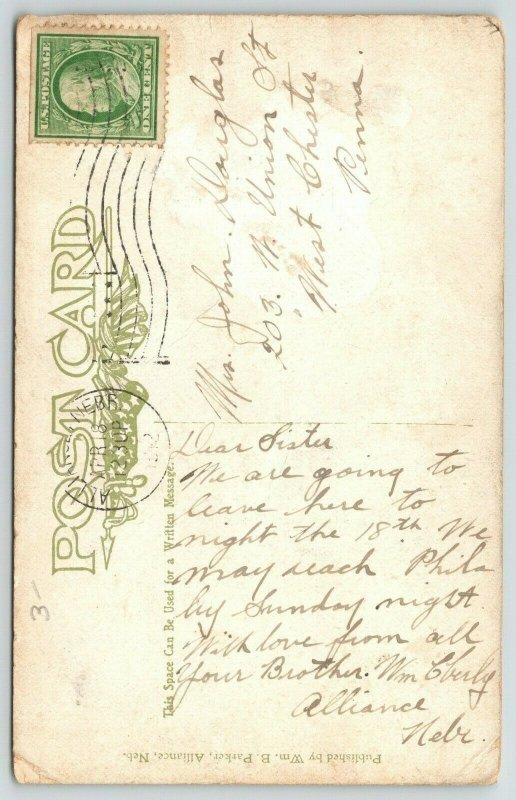 U.S. POSTAGE
ONE CENT
POST CARD
NEBR
12 10P
Mrs. John. Douglas
203. N Union St
West Chester
Penna.
This Space Can Be Used for a Written Message.
Dear Sister
We are going to
leave here to
night the 18th We
may reach Phila
by Sunday night.
With love from all
your Brother. Wm Eberly
Alliance
Nebr.
Published by Wm. B. Parker, Alliance, Neb.
3-